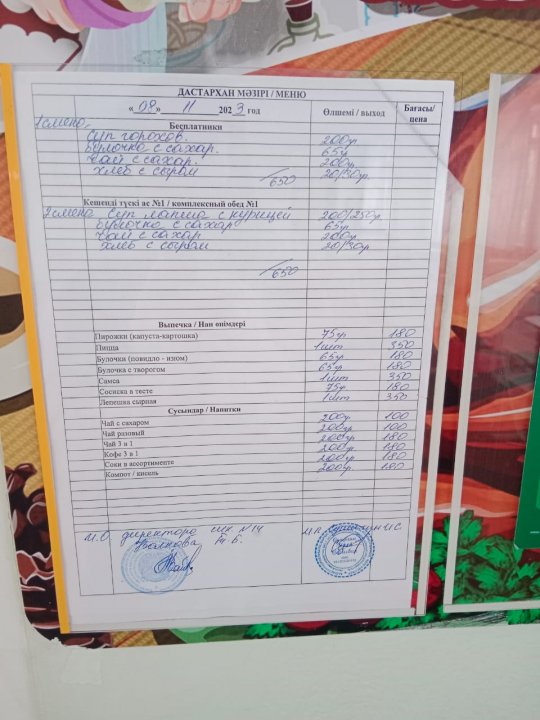 ДАСТАРХАН МӘЗІРІ / МЕНЮ
«08» 11 2023 год Өлшемі / выход Бағасы/ цена
1 смена. Бесплатники
Суп горохов. 200гр
Булочка с сахар. 65гр
Чай с сахар. 200гр
Хлеб с сыром 20/30гр.
/650
Кешенді түскі ас №1 / комплексный обед №1
2 смена Суп лапша с курицей 200/250гр
Булочка с сахар 65гр
Чай с сахар 200гр
Хлеб с сыром 20/30гр
/650
Выпечка / Нан өнімдері
Пирожки (капуста-картошка) 75гр 180
Пицца 1шт 350
Булочки (повидло - изюм) 65гр 180
Булочка с творогом 65гр 180
Самса 1шт 350
Сосиска в тесте 75гр 180
Лепешка сырная 1шт 350
Сусындар / Напитки
Чай с сахаром 200гр 100
Чай разовый 200гр 100
Чай 3 в 1 200гр 180
Кофе 3 в 1 200гр 180
Соки в ассортименте 200гр 180
Компот / кисель 200гр 180
И.О директора шк. №14 И.П.